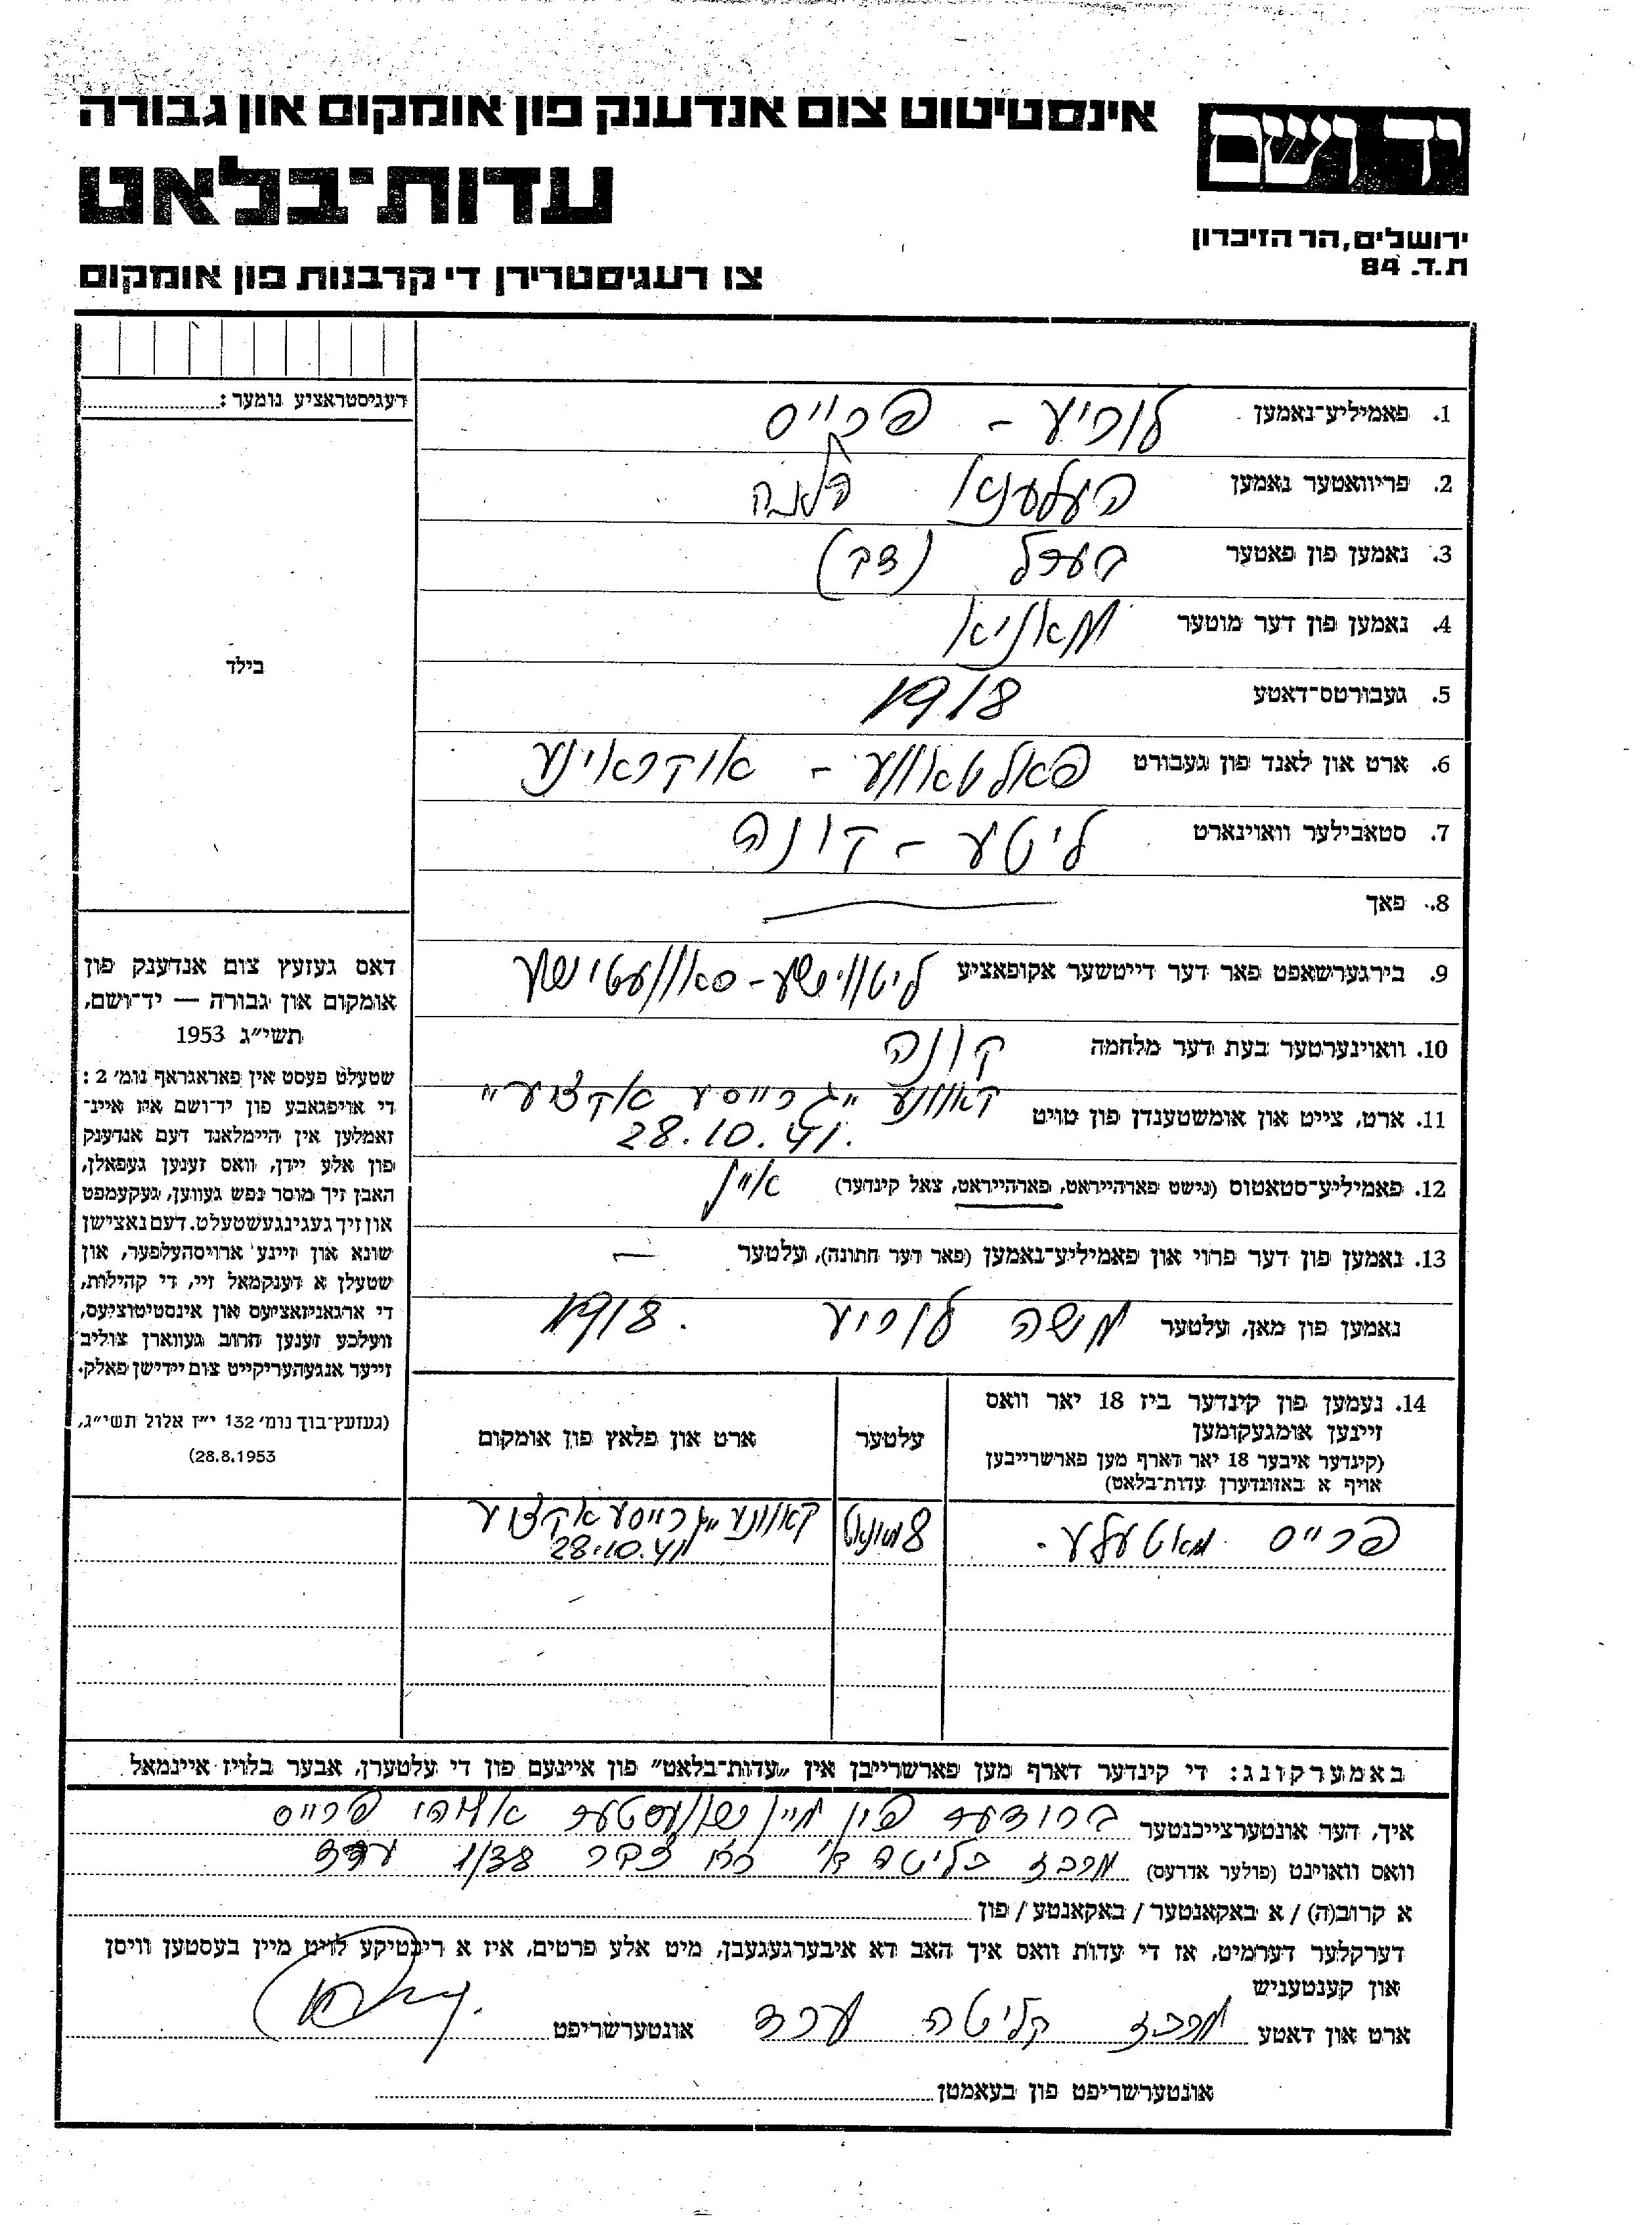 יד ושם
אינסטיטוט צום אנדענק פון אומקום און גבורה
עדות־בלאט
ירושלים, הר הזיכרון
ת.ד. 84
צו רעגיסטרירן די קרבנות פון אומקום
רעגיסטראציע נומער:
בילד
1. פאמיליע־נאמען לוריע - פרייס
2. פריוואטער נאמען העלענא
3. נאמען פון פאטער בערל (דב)
4. נאמען פון דער מוטער מאניא
5. געבורטס־דאטע 1918
6. ארט און לאנד פון געבורט פאלטאווע - אוקראינע
7. סטאבילער וואוינארט ליטע - קונה
8. פאך
9. בירגערשאפט פאר דער דייטשער אקופאציע ליטווישע - סאוועטישע
10. וואוינערטער בעת דער מלחמה קונה
11. ארט, צייט און אומשטענדן פון טויט קאוונע "גרייסע אקציע"
28.10.41.
12. פאמיליע־סטאטוס (נישט פארהייראט, פארהייראט, צאל קינדער) איין
13. נאמען פון דער פרוי און פאמיליע־נאמען (פאר דער חתונה), עלטער —
נאמען פון מאן, עלטער משה לוריע 1918.
דאס געזעץ צום אנדענק פון
אומקום און גבורה — יד־ושם,
תשי״ג 1953
שטעלט פעסט אין פאראגראף נומ׳ 2:
די אויפגאבע פון יד־ושם איז איינ־
זאמלען אין היימלאנד דעם אנדענק
פון אלע יידן, וואס זענען געפאלן,
האבן זיך מוסר נפש געווען, געקעמפט
און זיך געגינגעשטעלט. דעם נאצישן
שונא און זיינע ארויסהעלפער, און
שטעלן א דענקמאל זיי, די קהילות,
די ארגאניזאציעס און אינסטיטוציעס,
וועלכע זענען חרוב געווארן צוליב
זייער אנגעהעריקייט צום יידישן פאלק.
(געזעץ־בוך נומ׳ 132 י״ז אלול תשי״ג,
28.8.1953)
14. נעמען פון קינדער ביז 18 יאר וואס
זיינען אומגעקומען
(קינדער איבער 18 יאר דארף מען פארשרייבען
אויף א באזונדערן עדות־בלאט)
עלטער
ארט און פלאץ פון אומקום
פרייס מאטעלע. 8 מונאט קאוונע "גרייסע אקציע
28.10.41
באמערקונג: די קינדער דארף מען פארשרייבן אין „עדות־בלאט” פון איינעם פון די עלטערן, אבער בלויז איינמאל
איך, דער אונטערצייכנטער ברודער פון מיין שוועסטער אליהו פרייס
וואס וואוינט (פולער אדרעס) מרכז קליטה 38/1 ערד
א קרוב(ה) / א באקאנטער / באקאנטע / פון
דערקלער דערמיט, אז די עדות וואס איך האב דא איבערגעגעבן, מיט אלע פרטים, איז א ריכטיקע לויט מיין בעסטען וויסן
און קענטעניש
ארט און דאטע מרכז קליטה ערד אונטערשריפט
אונטערשריפט פון בעאמטן